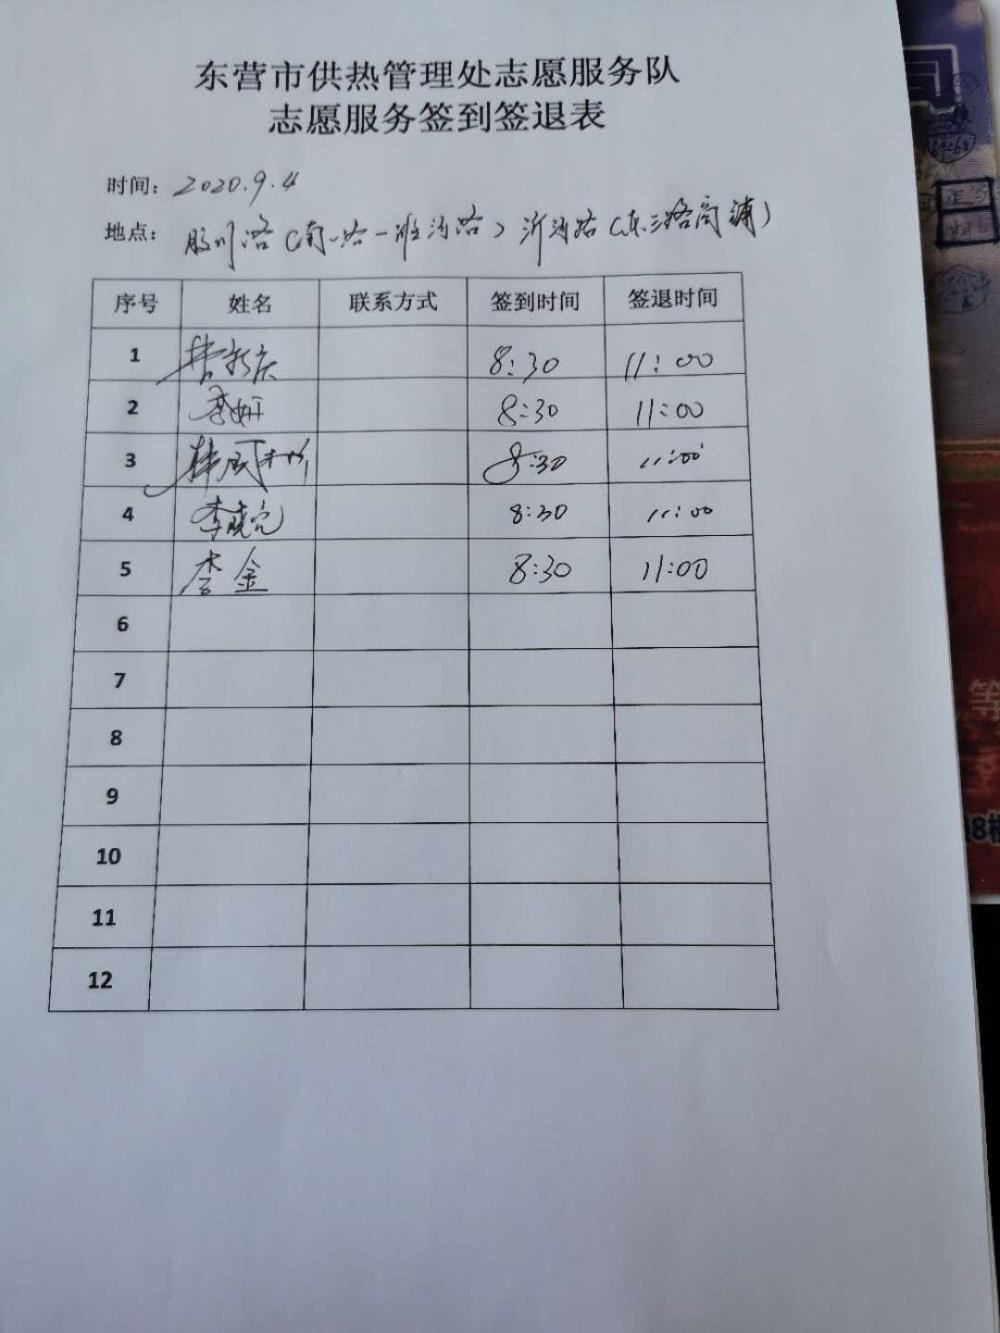 东营市供热管理处志愿服务队
志愿服务签到签退表
时间: 2020.9.4
地点: 胶川路(南一路-淮河路) 沂河路(东三路商铺)
序号 姓名 联系方式 签到时间 签退时间
1 8:30 11:00
2 李妍 8:30 11:00
3 8:30 11:00
4 李晓亮 8:30 11:00
5 李金 8:30 11:00
6
7
8
9
10
11
12
等